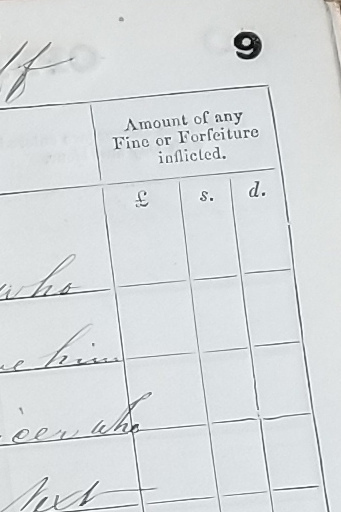 9
Amount of any
Fine or Forfeiture
inflicted.
£ s. d.
who
him
who
next